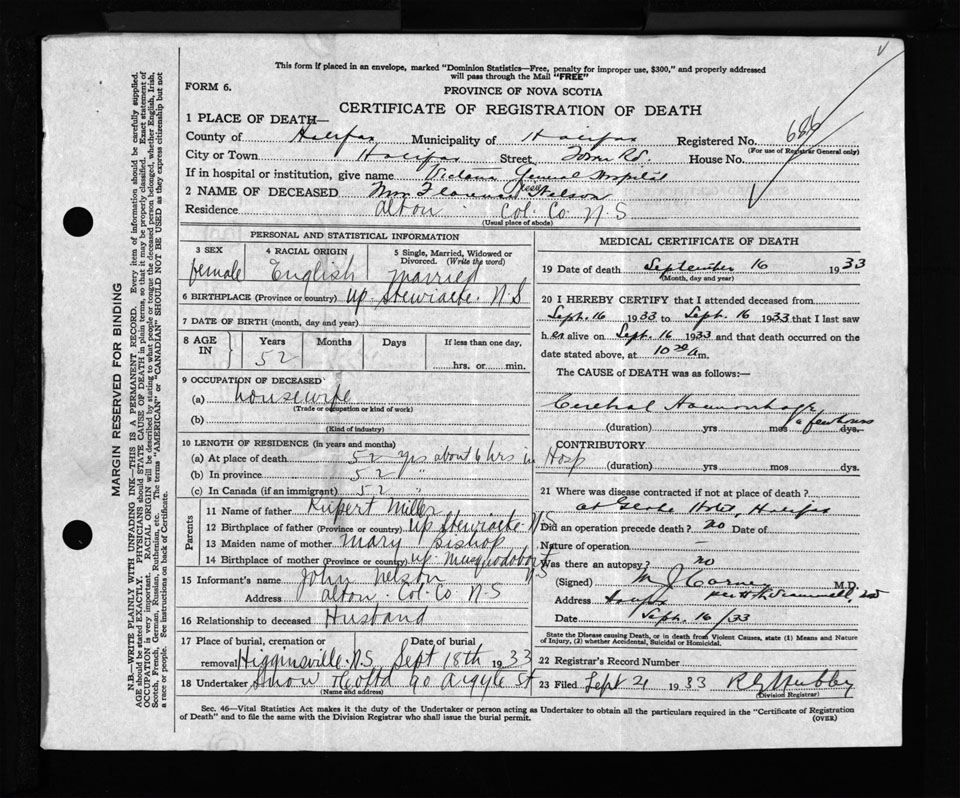 This form if placed in an envelope, marked "Dominion Statistics—Free, penalty for improper use, $300," and properly addressed
will pass through the Mail "FREE"
FORM 6.
PROVINCE OF NOVA SCOTIA
CERTIFICATE OF REGISTRATION OF DEATH
1 PLACE OF DEATH—
County of Halifax Municipality of Halifax Registered No. 686
(For use of Registrar General only)
City or Town Halifax Street Tower Rd. House No.
If in hospital or institution, give name Victoria General Hospital
2 NAME OF DECEASED Mrs Florence Nelson
Residence Alton Col. Co N.S
(Usual place of abode)
PERSONAL AND STATISTICAL INFORMATION
3 SEX female
4 RACIAL ORIGIN English
5 Single, Married, Widowed or Divorced. (Write the word) married
6 BIRTHPLACE (Province or country) Up. Stewiacke. N.S
7 DATE OF BIRTH (month, day and year)
8 AGE IN Years 52 Months Days If less than one day, hrs. or min.
9 OCCUPATION OF DECEASED
(a) housewife
(Trade or occupation or kind of work)
(b)
(Kind of industry)
10 LENGTH OF RESIDENCE (in years and months)
(a) At place of death 52 yrs about 6 hrs in Hosp
(b) In province 52 "
(c) In Canada (if an immigrant) 52 "
Parents
11 Name of father Rupert Miller
12 Birthplace of father (Province or country) Up Stewiacke N.S
13 Maiden name of mother Mary Bishop
14 Birthplace of mother (Province or country) Up. Musquodoboit N.S
15 Informant's name John Nelson
Address Alton. Col. Co N.S
16 Relationship to deceased Husband
17 Place of burial, cremation or removal Higginsville. N.S. Date of burial Sept 18th 1933
18 Undertaker Snow & Co Ltd 90 Argyle St
(Name and address)
MEDICAL CERTIFICATE OF DEATH
19 Date of death September 16 1933
(Month, day and year)
20 I HEREBY CERTIFY that I attended deceased from
Sept. 16 1933 to Sept. 16 1933 that I last saw
her alive on Sept. 16 1933 and that death occurred on the
date stated above, at 10 30 am.
The CAUSE of DEATH was as follows:—
Cerebral Haemorrhage
(duration) yrs mos a few hours dys.
CONTRIBUTORY
(duration) yrs mos dys.
21 Where was disease contracted if not at place of death?
at Hotel, Halifax
Did an operation precede death? no Date of
Nature of operation —
Was there an autopsy? no
(Signed) M.D.
Address
Date Sept. 16/33
State the Disease causing Death, or in death from Violent Causes, state (1) Means and Nature
of Injury, (2) whether Accidental, Suicidal or Homicidal.
22 Registrar's Record Number
23 Filed Sept 21 1933
(Division Registrar)
Sec. 46—Vital Statistics Act makes it the duty of the Undertaker or person acting as Undertaker to obtain all the particulars required in the "Certificate of Registration
of Death" and to file the same with the Division Registrar who shall issue the burial permit. (OVER)
MARGIN RESERVED FOR BINDING
N.B.—WRITE PLAINLY WITH UNFADING INK—THIS IS A PERMANENT RECORD. Every item of information should be carefully supplied.
AGE should be stated EXACTLY. PHYSICIANS should STATE CAUSE OF DEATH in plain terms, so that it may be properly classified. Exact statement of
OCCUPATION is very important. RACIAL ORIGIN will be described by stating to what people or tongue the deceased person belonged, whether English, Irish,
Scotch, French, German, Russian, Ruthenian, etc. The terms "AMERICAN" or "CANADIAN" SHOULD NOT BE USED as they express citizenship but not
a race or people. See instructions on back of Certificate.